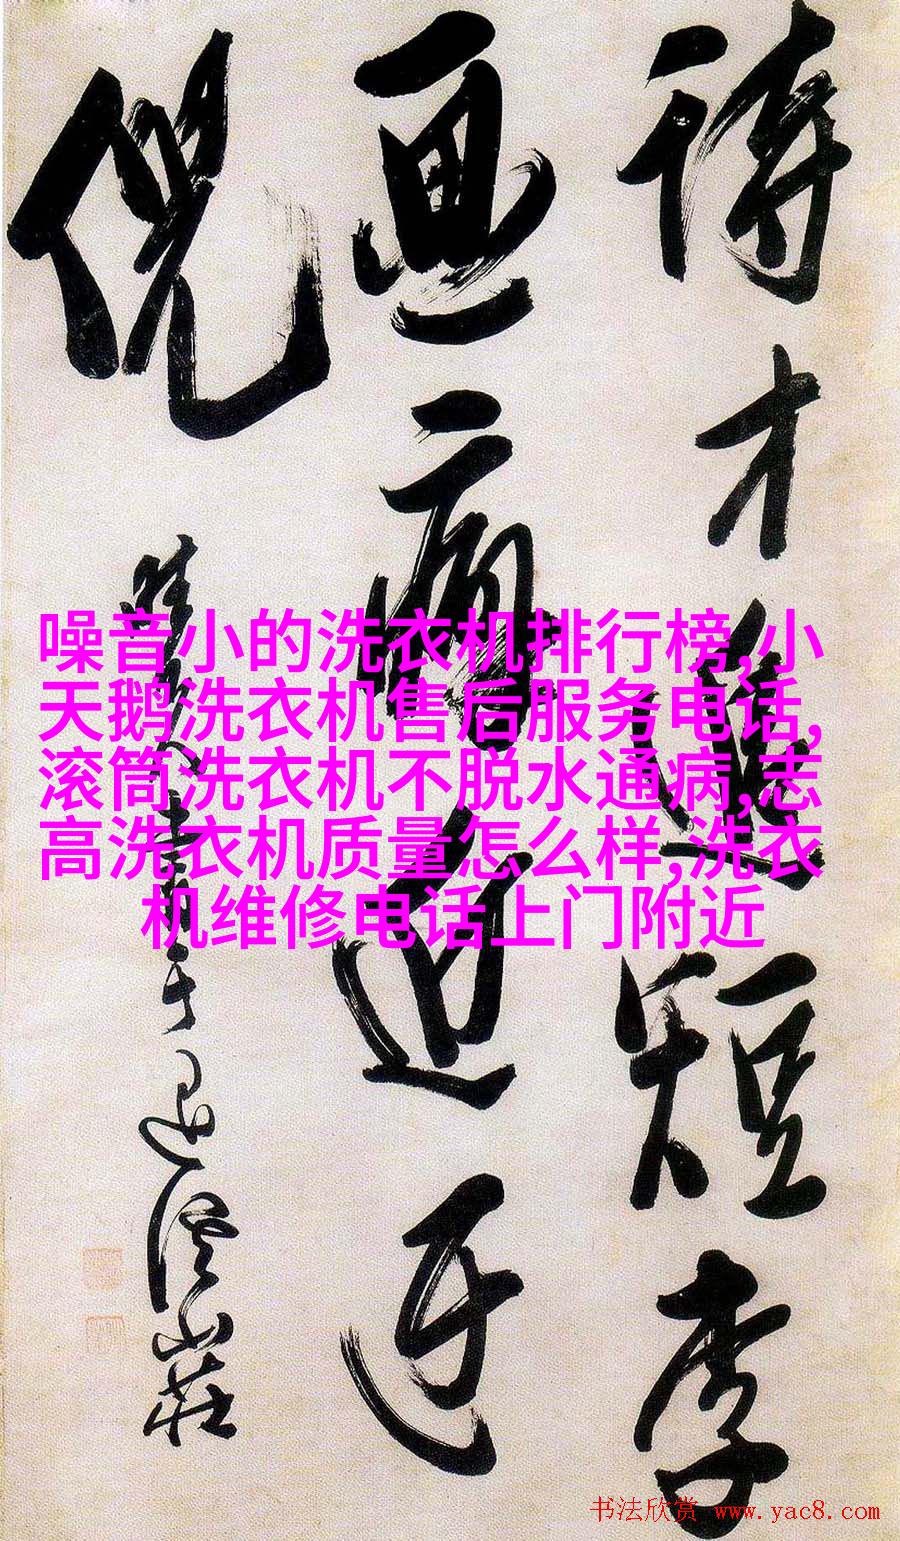 詩才進短李
画癖迫迂
倪
噪音小的洗衣机排行榜,小
天鹅洗衣机售后服务电话,
滚筒洗衣机不脱水通病,志
高洗衣机质量怎么样,洗衣
机维修电话上门附近
书法欣赏 www.yac8.com